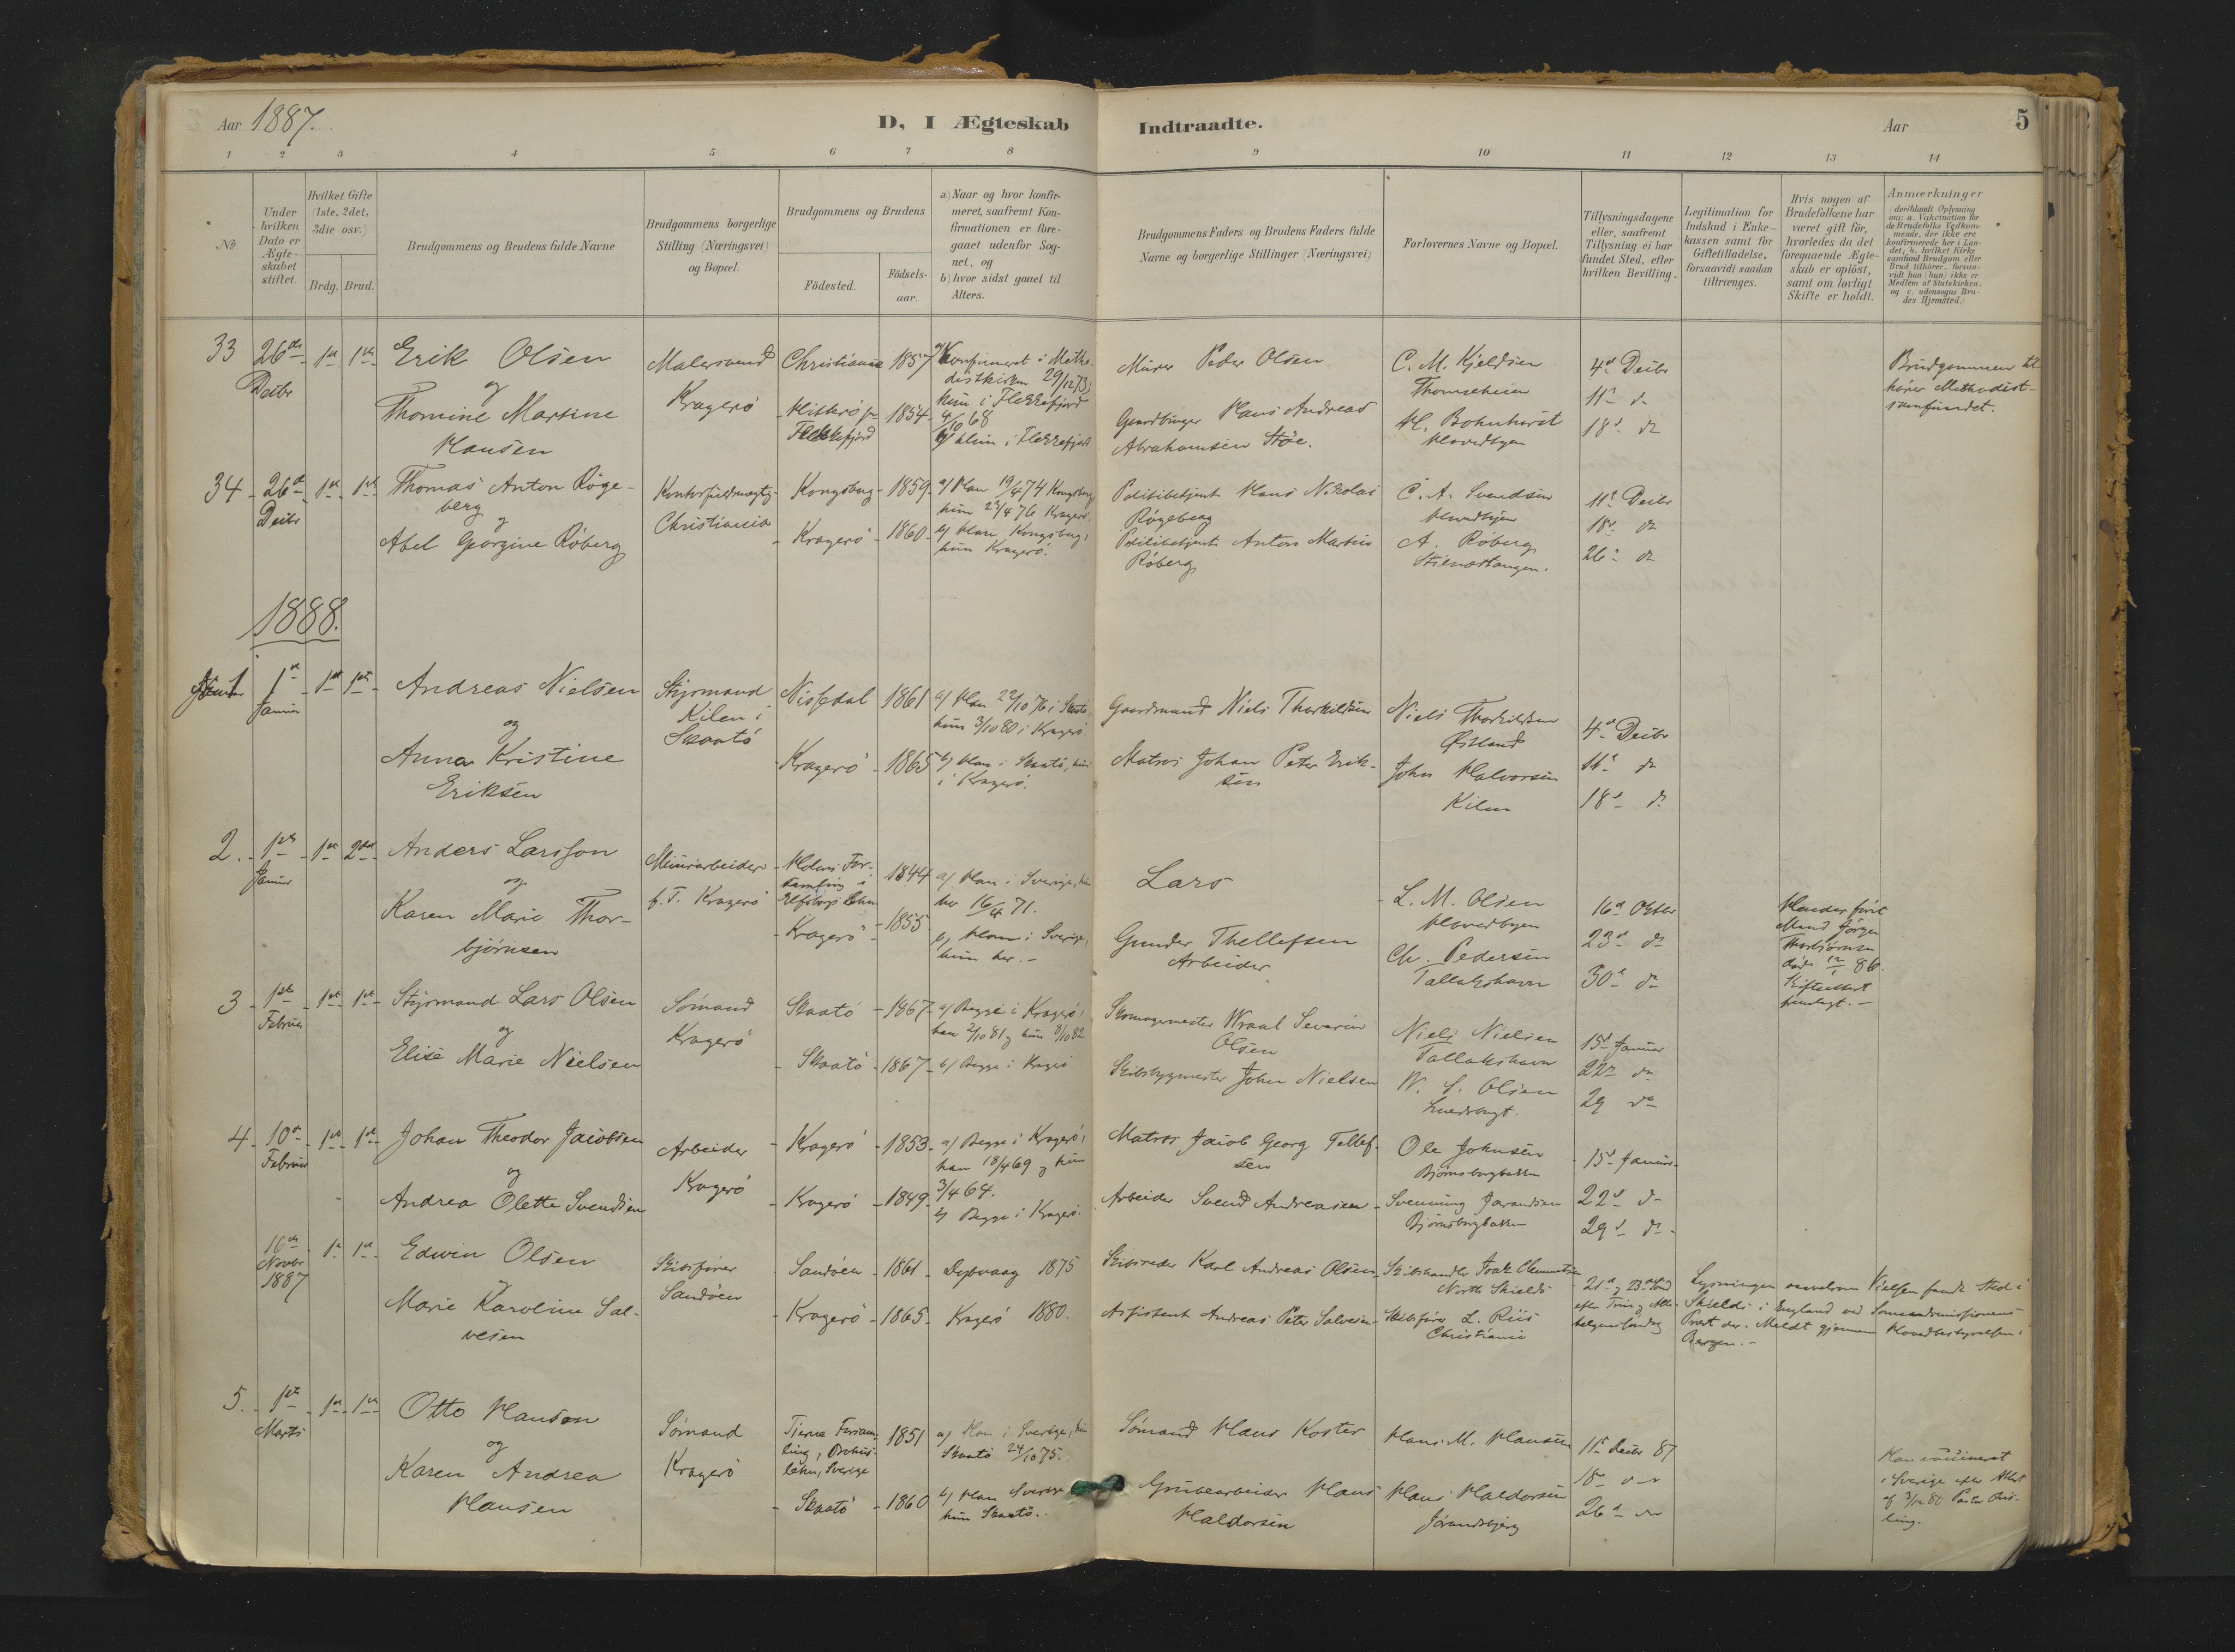 Aar 1887.
D, I Ægteskab Indtraadte.
Aar
5
1 2 3 4 5 6 7 8 9 10 11 12 13 14
No
Under hvilken Dato er Ægteskabet stiftet.
Hvilket Gifte (1ste, 2det, 3die osv.)
Brdg. Brud.
Brudgommens og Brudens fulde Navne
Brudgommens borgerlige Stilling (Næringsvei) og Bopæl.
Brudgommens og Brudens
Födested.
Födsels-aar.
a) Naar og hvor konfirmeret, saafremt Konfirmationen er foregaaet udenfor Sognet, og
b) hvor sidst gaaet til Alters.
Brudgommens Faders og Brudens Faders fulde Navne og borgerlige Stillinger (Næringsvei)
Forlovernes Navne og Bopæl.
Tillysningsdagene eller, saafremt Tillysning ei har fundet Sted, efter hvilken Bevilling.
Legitimation for Indskud i Enkekassen samt for Giftetilladelse, forsaavidt saadan tiltrænges.
Hvis nogen af Brudefolkene har været gift för, hvorledes da det foregaaende Ægteskab er oplöst, samt om lovligt Skifte er holdt.
Anmærkninger
(deriblandt Oplysning om: a. Vakcination for de Brudefolks Vedkommende, der ikke ere konfirmerede her i Landet; b. hvilket Kirkesamfund Brudgom eller Brud tilhörer, forsaavidt han (hun) ikke er Medlem af Statskirken, og c. udensogns Brudes Hjemsted.)
33 26de Decbr 1ste 1ste
Erik Olsen
og
Thomine Martine
Hansen
Malersvend
Kragerø
Christiania 1857
Hitterø pr Flekkefjord 1854
a) Konfirmeret i Methodistkirken 29/12 73,
hun i Flekkefjord
4/10 68
b) hun i Flekkefjord
Murer Peder Olsen
Gaardbruger Hans Andreas
Abrahamsen Støe.
C. M. Kjeldsen
H. Bohnhorst
Hovedbyen
4d Decbr
11te do
18d do
Brudgommen til
hører Methodist-
samfundet.
34 26de Decbr 1ste 1ste
Thomas Anton Røge-
berg
og
Abel Georgine Røberg
Kontorfuldmægtig
Christiania
Kongsberg 1859
Kragerø 1860
a) Han 19/4 74 Kongsberg
hun 23/4 76 Kragerø.
b) Han Kongsberg,
hun Kragerø.
Politibetjent Hans Nikolai
Røgeberg
Politibetjent Anton Martin
Røberg
C. A. Svendsen
Hovedbyen
A. Røberg
Stilnestangen.
11te Decbr
18d do
26de do
1888.
1 1ste Januar 1ste 1ste
Andreas Nielsen
og
Anna Kristine
Eriksen
Styrmand
Kilen i
Skaatø
Nissedal 1861
Kragerø 1865
a) Han 22/10 76 i Skaatø
hun 3/10 80 i Kragerø
b) Han i Skaatø, hun
i Kragerø.
Gaardmand Niels Thorkildsen
Matros Johan Peter Erik-
sen
Niels Thorkildsen
Østland
John Halvorsen
Kilen
4d Decbr
11te do
18d do
2. 1ste Januar 1ste 2det
Anders Larsson
og
Karen Marie Thor-
bjørnsen
Minearbeider
f. T. Kragerø
Holms For-
samling i
Elfsborgs Lehn 1844
Kragerø 1855
a) Han i Sverige, hun
her 16/4 71.
b) Han i Sverige,
hun her.
Lars
Gunder Thellefsen
Arbeider
L. M. Olsen
Hovedbyen
Ch. Pedersen
Tallakshavn
16d Octbr
23d do
30d do
Hendes først
Mand Jørgen
Thorbjørnsen
døde 12/1 86.
Skifteattest
fremlagt.
3 1ste Februar 1ste 1ste
Styrmand Lars Olsen
og
Elise Marie Nielsen
Sømand
Kragerø
Skaatø 1867
Skaatø 1867
a) Begge i Kragerø,
han 2/10 81 og hun 8/10 82
b) Begge i Kragerø
Skomagermester Wraal Severin
Olsen
Skibsbygmester John Nielsen
Niels Nielsen
Tallakshavn
W. S. Olsen
Smedsbugt.
15d Januar
22d do
29 do
4 10de Februar 1ste 1ste
Johan Theodor Jacobsen
og
Andrea Olette Svendsen
Arbeider
Kragerø
Kragerø 1853
Kragerø 1849
a) Begge i Kragerø,
han 18/4 69 og hun
3/4 64.
b) Begge i Kragerø.
Matros Jacob Georg Tellef-
sen
Arbeider Svend Andreasen
Ole Johnsen
Bjørnsborgbakken
Svenning Jørandsen
Bjørnsborgbakken
15d Januar
22d do
29d do
16de Novbr 1887 1ste 1ste
Edwin Olsen
og
Marie Karoline Sal-
vesen
Skibsfører
Sandøen
Sandøen 1861
Kragerø 1865
Dybvaag 1875
Kragerø 1880.
Skibsreder Karl Andreas Olsen
Assistent Andreas Peter Salvesen
Skibshandler Isak Clementsen
North Shields
Skibsfører L. Riis
Christiania
21d og 23d Sønd
efter Trin og Alle-
helgenssøndag
Lysningen saavelsom Vielsen fandt Sted i
Shields i England ved Sømandsmissionens
Præst der. Meldt gjennem Hovedbestyrelsen i
Bergen.
5. 1ste Marts 1ste 1ste
Otto Hanson
og
Karen Andrea
Hansen
Sømand
Kragerø
Tjerne Forsam-
ling, Bohus-
lehn, Sverige 1851
Skaatø 1860
a) Han i Sverige, hun
Skaatø 24/10 75.
b) Han Sverige
hun Skaatø.
Sømand Hans Koster
Grubearbeider Hans
Haldorsen
Hans M. Hansen
Hans Haldorsen
Jørandsbjerg
11te Decbr 87
18d do
26d do
Han vaccineret
i Sverige efter Attest
af 3/12 80 Pastor